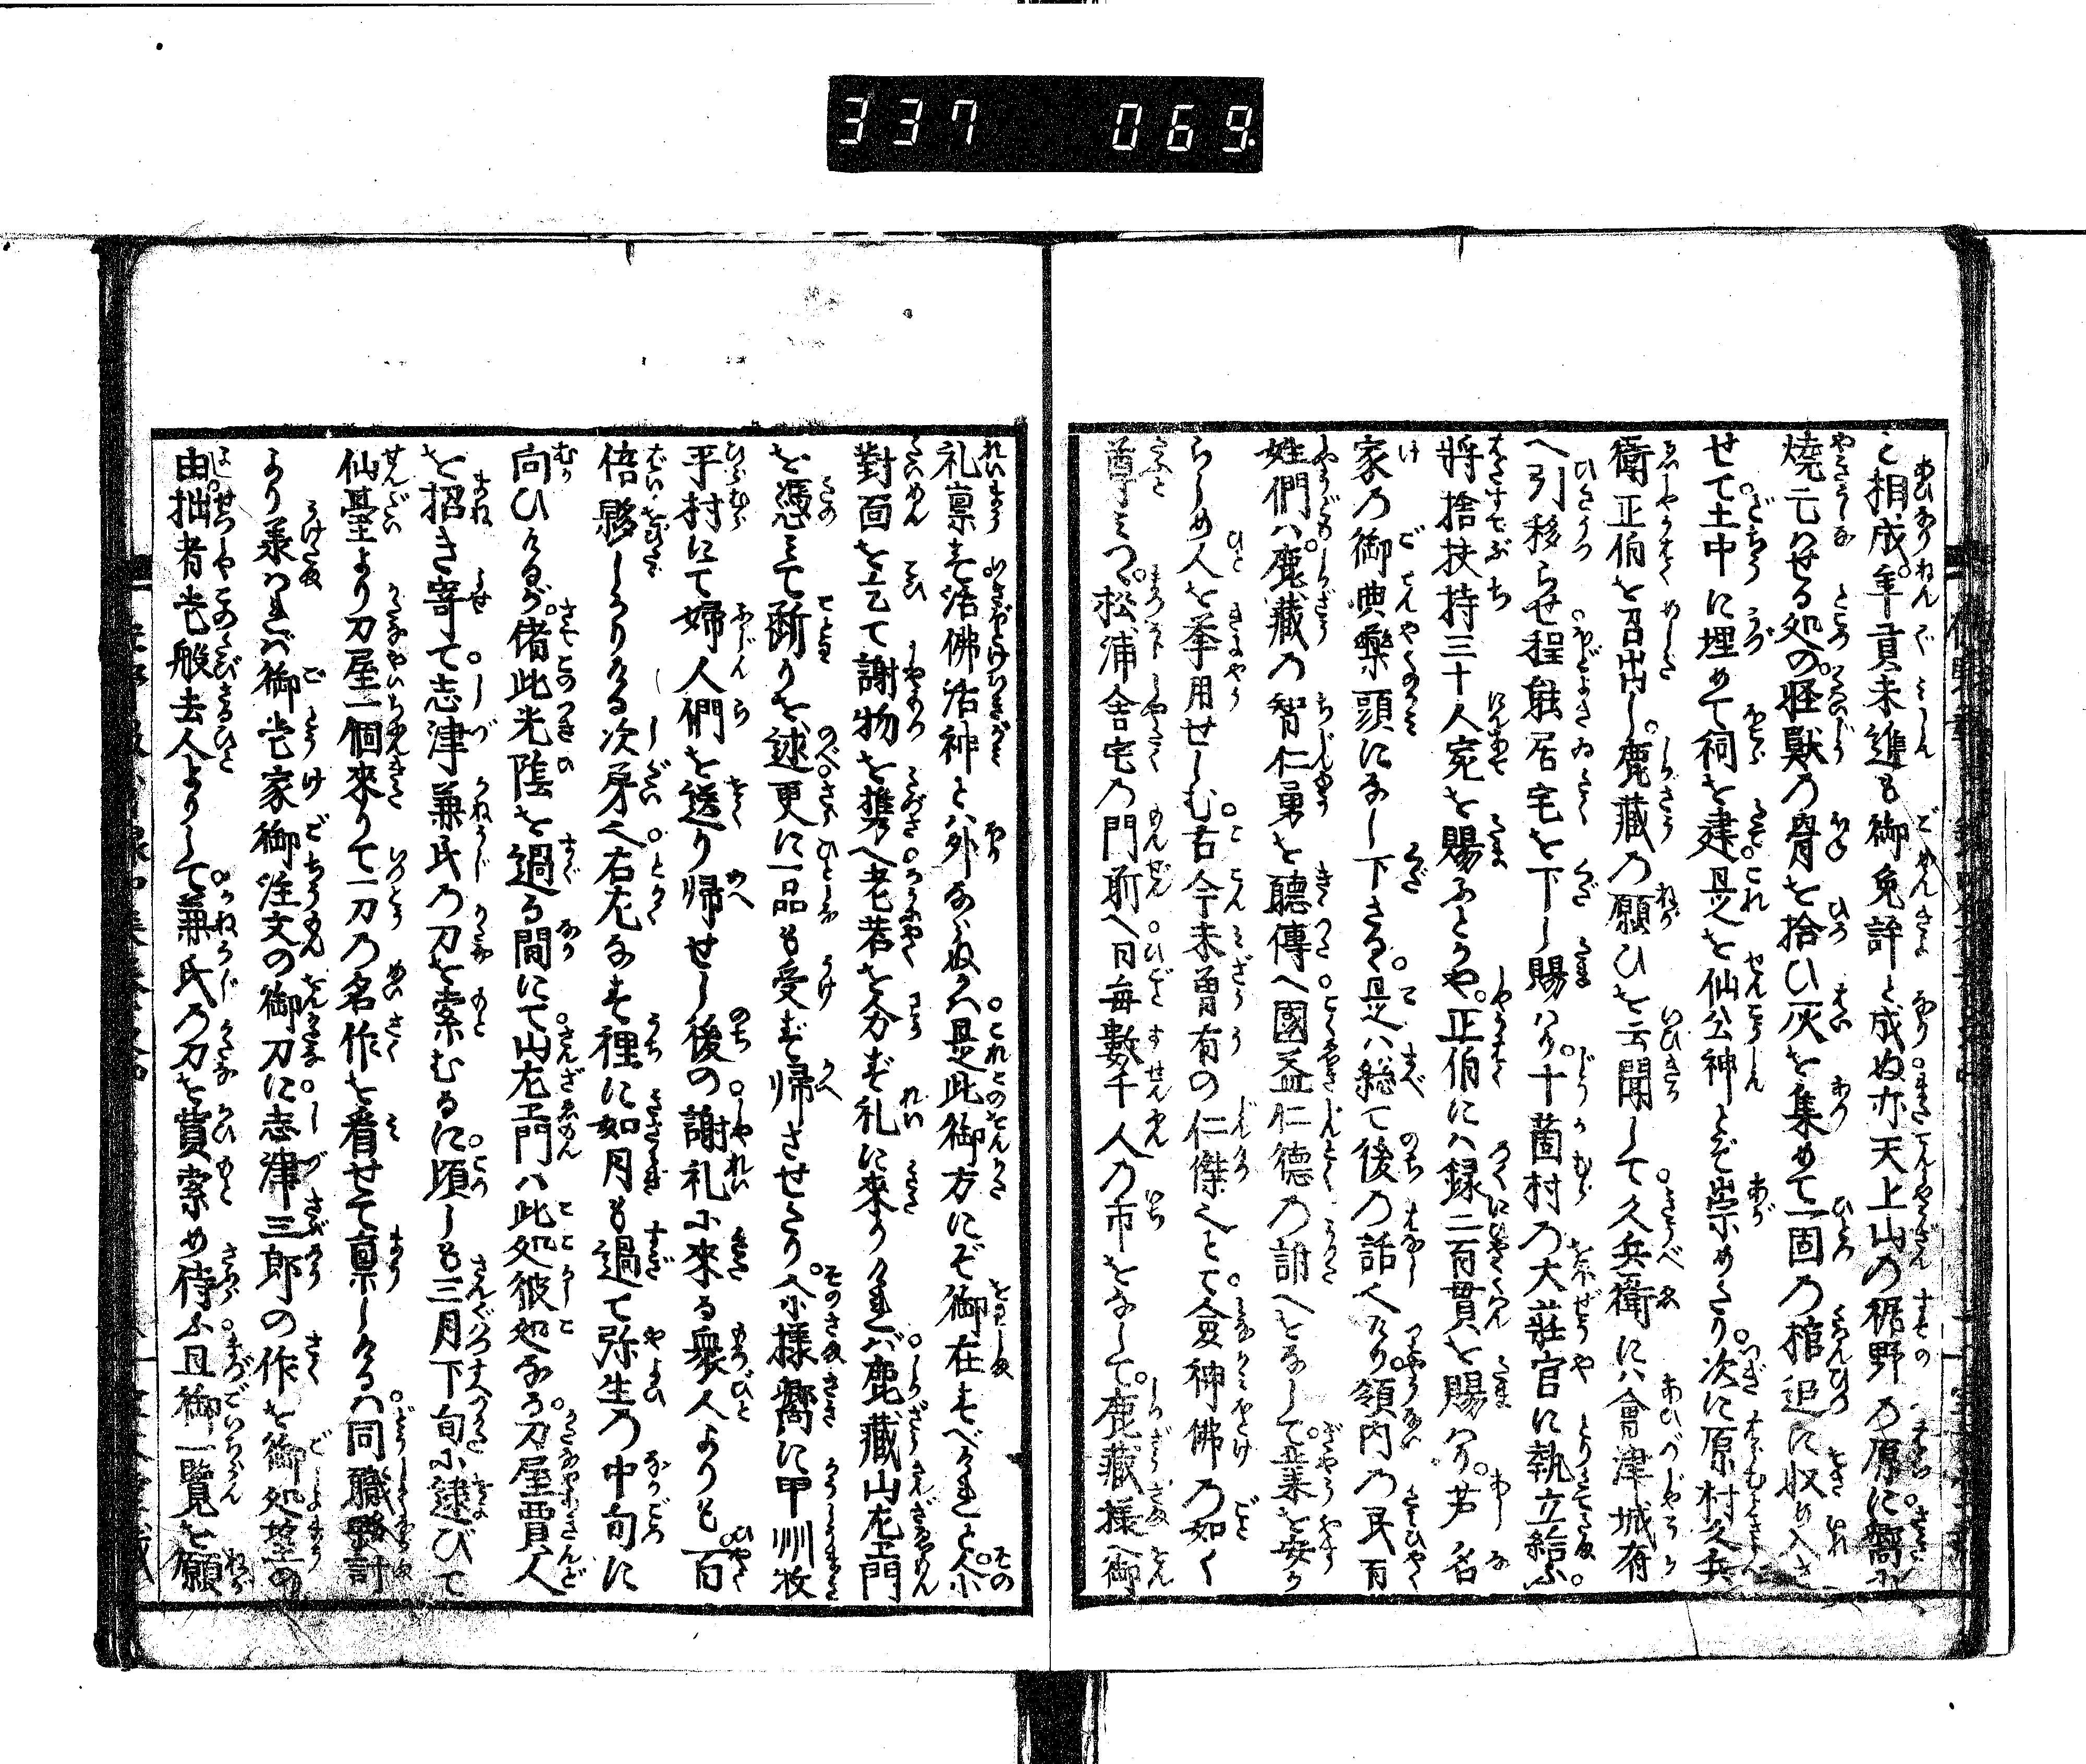 337 069
と相成。年貢未進も御免許と成ぬ。亦天上山の裾野の原に。嚮に
焼亡はせる処の。怪獣の骨を拾ひ灰を集めて一固の棺に収め入さ
せて。土中に埋めて祠を建。是を仙公神とぞ崇めたり。次に原村久兵
衛正伯を召出し。鹿蔵の願ひを云聞して。久兵衛には會津城府
へ引移らせ。程能居宅を下し賜はり。十箇村の大莊官に執立給ふ。
将捨扶持三十人宛を賜ふとかや。正伯には録二百貫を賜はり。芦名
家の御典藥頭になし下さる。是は総て後の話也けり。領内の民百
姓們は。鹿蔵の智仁勇を聽傳へ。國益仁徳の訴へをなして。業を安か
らしめ人を挙用せしむ。古今未曽有の仁傑也とて。僉神佛の如く
尊みつ。松浦舎宅の門前へ。日毎數千人の市をなして。鹿蔵様へ御
礼禀す。活佛活神とは外ならぬか。是此御方にぞ御在すべけれと。尒
對面を乞て謝物を携へ。老若を分ず礼に来りければ。鹿蔵山左エ門
を憑みて断りを述。更に一品も受ず帰させたり。尒様嚮に甲州牧
平村にて婦人們を送り帰せし後の。謝礼に来る衆人よりも。百
倍夥しかりける次第也。右左なす裡に如月も過て弥生の中旬に
向ひけるが。偖此光陰を過る間にて。山左エ門は此処彼処なる。刀屋賈人
を招き寄て。志津兼氏の刀を索むるに。頃しも三月下旬に逮びて
仙臺より刀屋一個来りて一刀の名作を看せて禀しけるは。同職夥計
より羕はれば。御当家御注文の御刀に。志津三郎の作を御処望の
由。拙者当般去人よりして。兼氏の刀を賣索め侍ふ。且御一覧を願